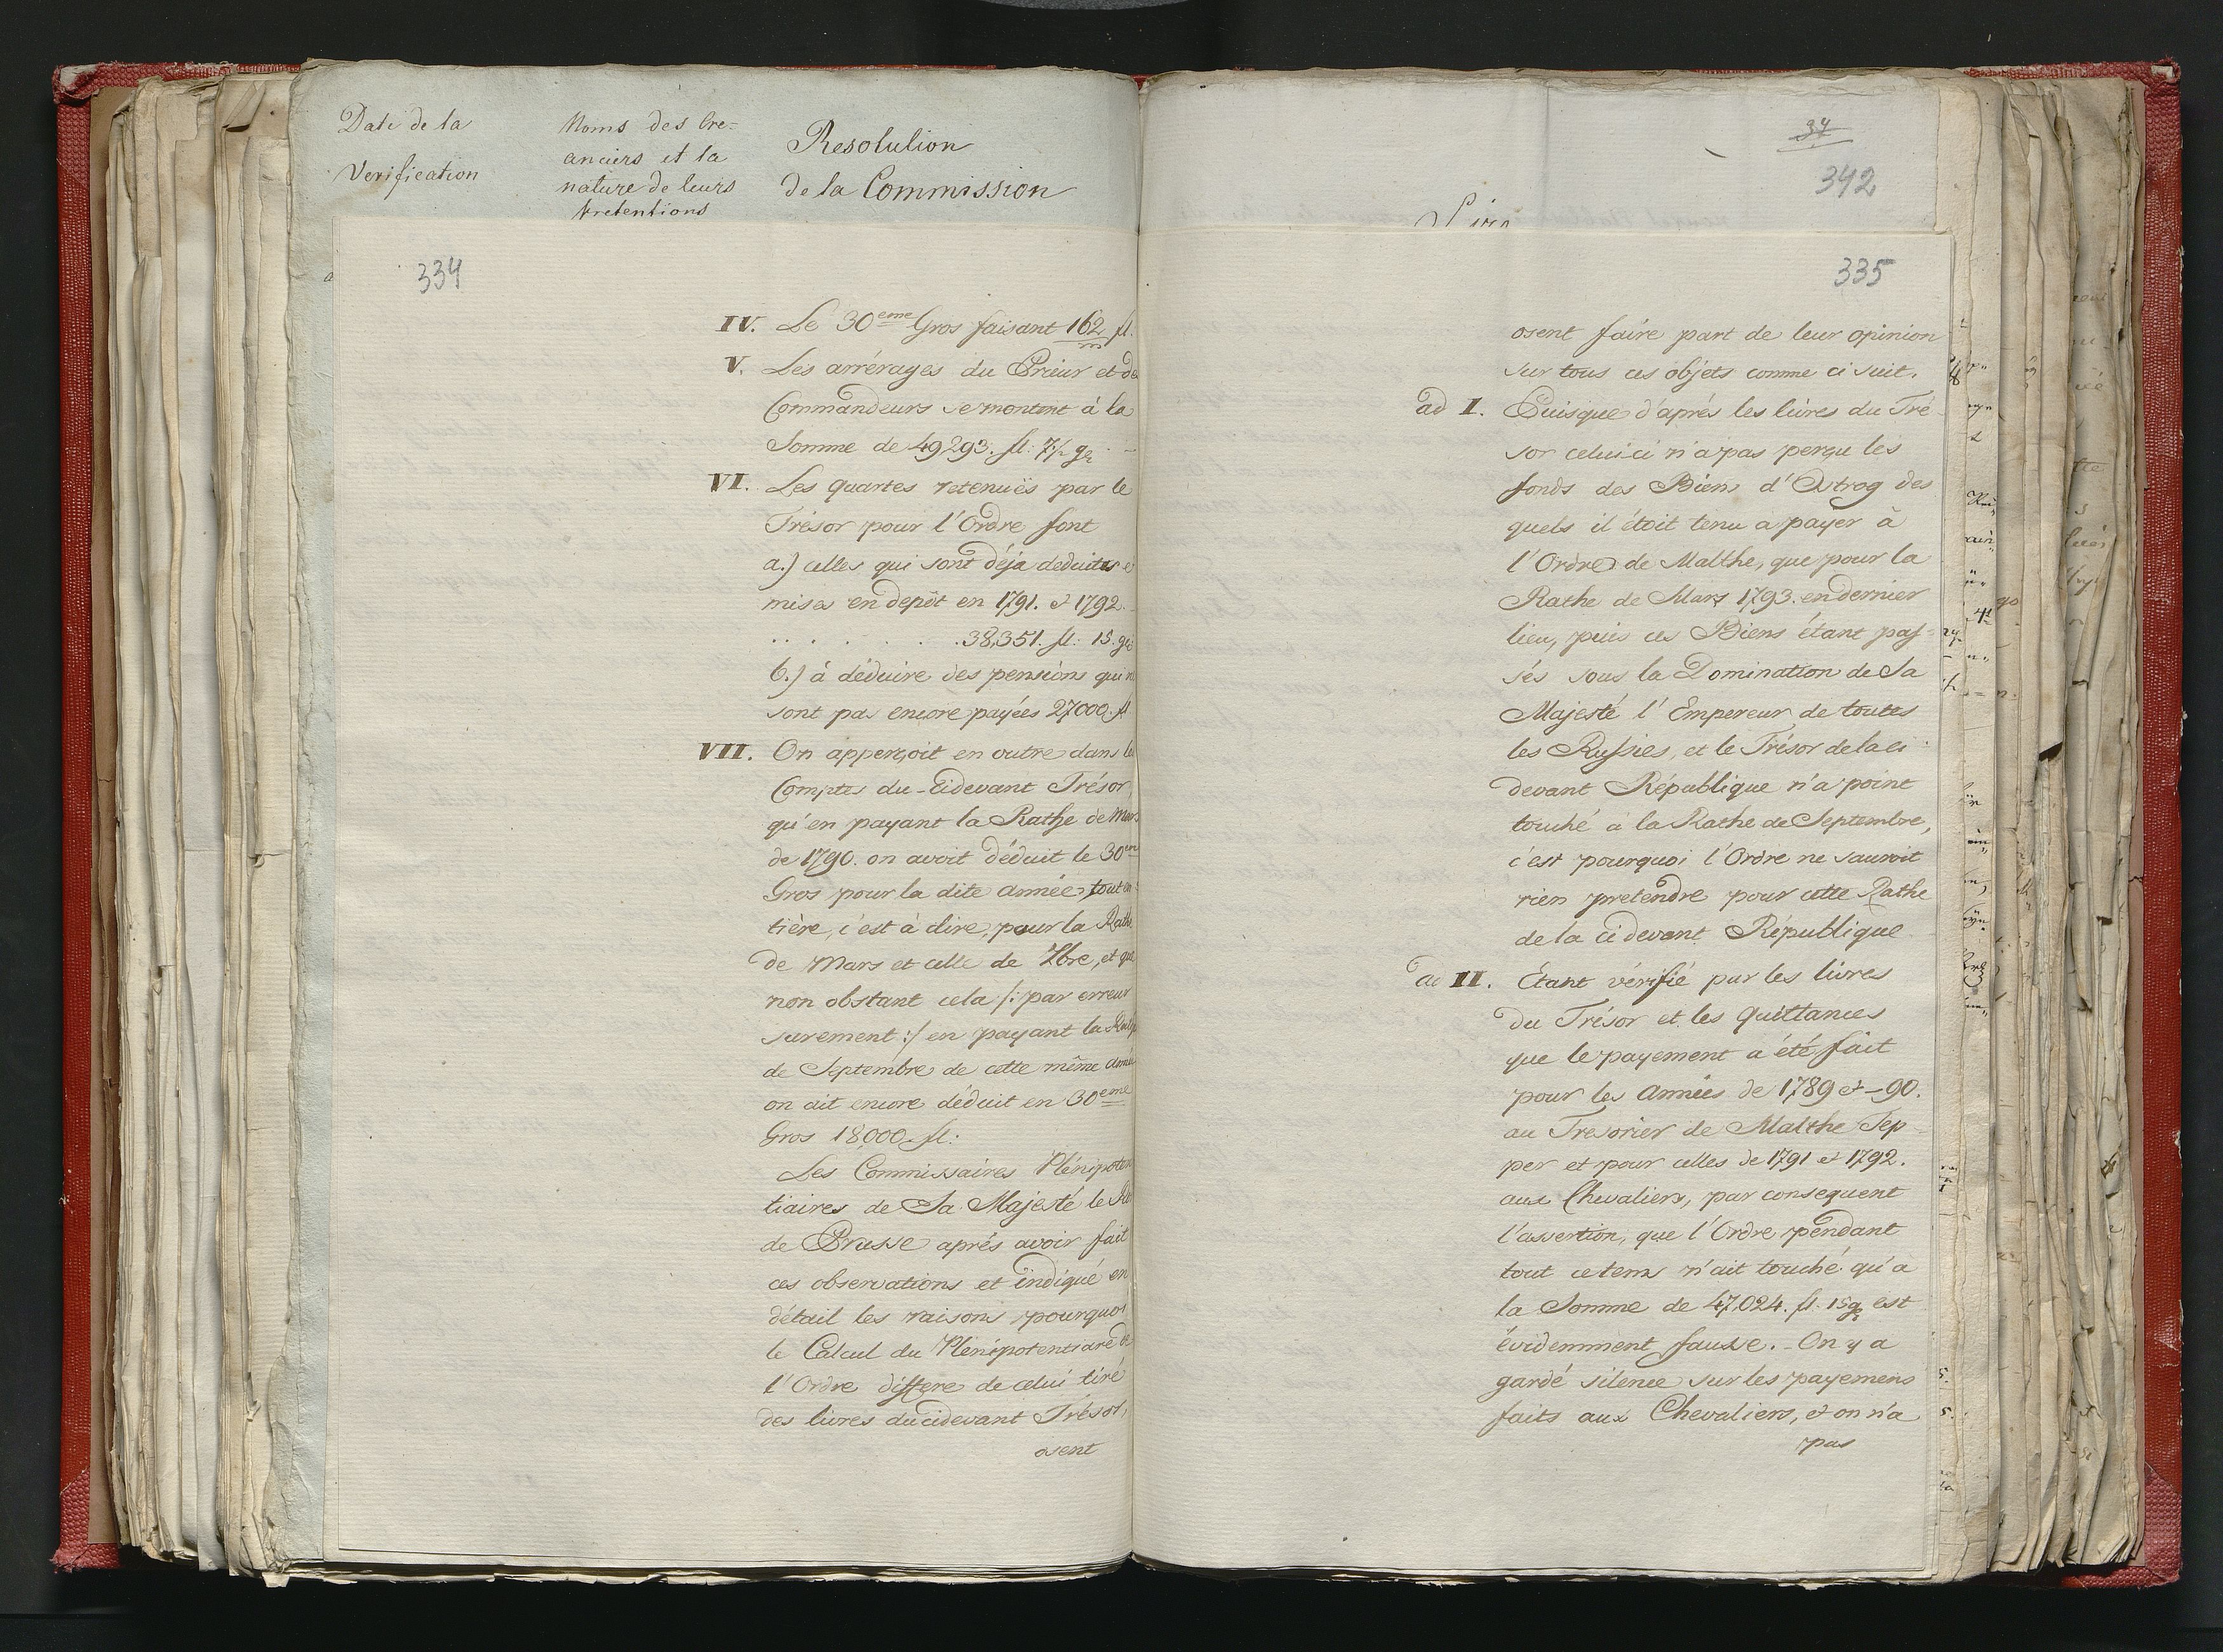 Date de la
Verification
Noms des Cre-
anciers et la
nature de leurs
pretentions
Resolution
de la Commission
334
IV. Le 30eme Gros faisant 162 fl.
m
V. Les arrérages du Prieur et de
Commandeurs se montent à la
Somme de 49293. fl: 7½ gr
VI. Les quartes retenuës par le
Trésor pour l'Ordre sont
a.) celles qui sont déja deduites e
mises en depôt en 1791. et 1792.
. . . . . . 38,351. fl: 15. gr:
b.) à déduire des pensions qui n
sont pas encore payées 27000. fl
VII. On apperçoit en outre dans le
Comptes du Cidevant Trésor,
qu'en payant la Rathe de Mars
de 1790. on avoit déduit le 30em
Gros pour la dite année tout en-
tière, c'est à dire, pour la Rathe
de Mars et celle de 7bre, et que
non obstant cela /: par erreur
surement :/ en payant la Rathe
de Septembre de cette même anné
on ait encore déduit en 30eme
Gros 18,000. fl:
Les Commissaires Plénipoten
tiaires de Sa Majesté le Roi
de Prusse aprés avoir fait
ces observations et indiqué en
détail les raisons pourquoi
le Calcul du Plénipotentiare de
l'Ordre differe de celui tiré
des livres du cidevant Trésor,
osent
34
342
335
osent faire part de leur opinion
sur tous ces objets comme ci suit.
ad I. Puisque d'aprés les livres du Tré-
sor celui ci n'a pas perçu les
fonds des Biens d'Ostrog des
quels il étoit tenu a payer à
l'Ordre de Malthe, que pour la
Rathe de Mars 1793. en dernier
lieu, puis ces Biens étant pas-
sés sous la Domination de Sa
Majesté l'Empereur de toutes
les Russies, et le Trésor de la ci
devant République n'a point
touché à la Rathe de Septembre,
c'est pourquoi l'Ordre ne sauroit
rien pretendre pour cette Rathe
de la ci devant République
ad II. Étant vérifié par les livres
du Trésor et les quittances
que le payement a été fait
pour les Années de 1789 et -90.
au Tresorier de Malthe Tep-
per et pour celles de 1791 et 1792.
aux Chevaliers, par consequent
l'assertion, que l'Ordre pendant
tout ce tems n'ait touché qu'a
la Somme de 47,024. fl. 15 gr est
évidemment fausse. - On y a
gardé silence sur les payemens
faits aux Chevaliers, et on n'a
pas